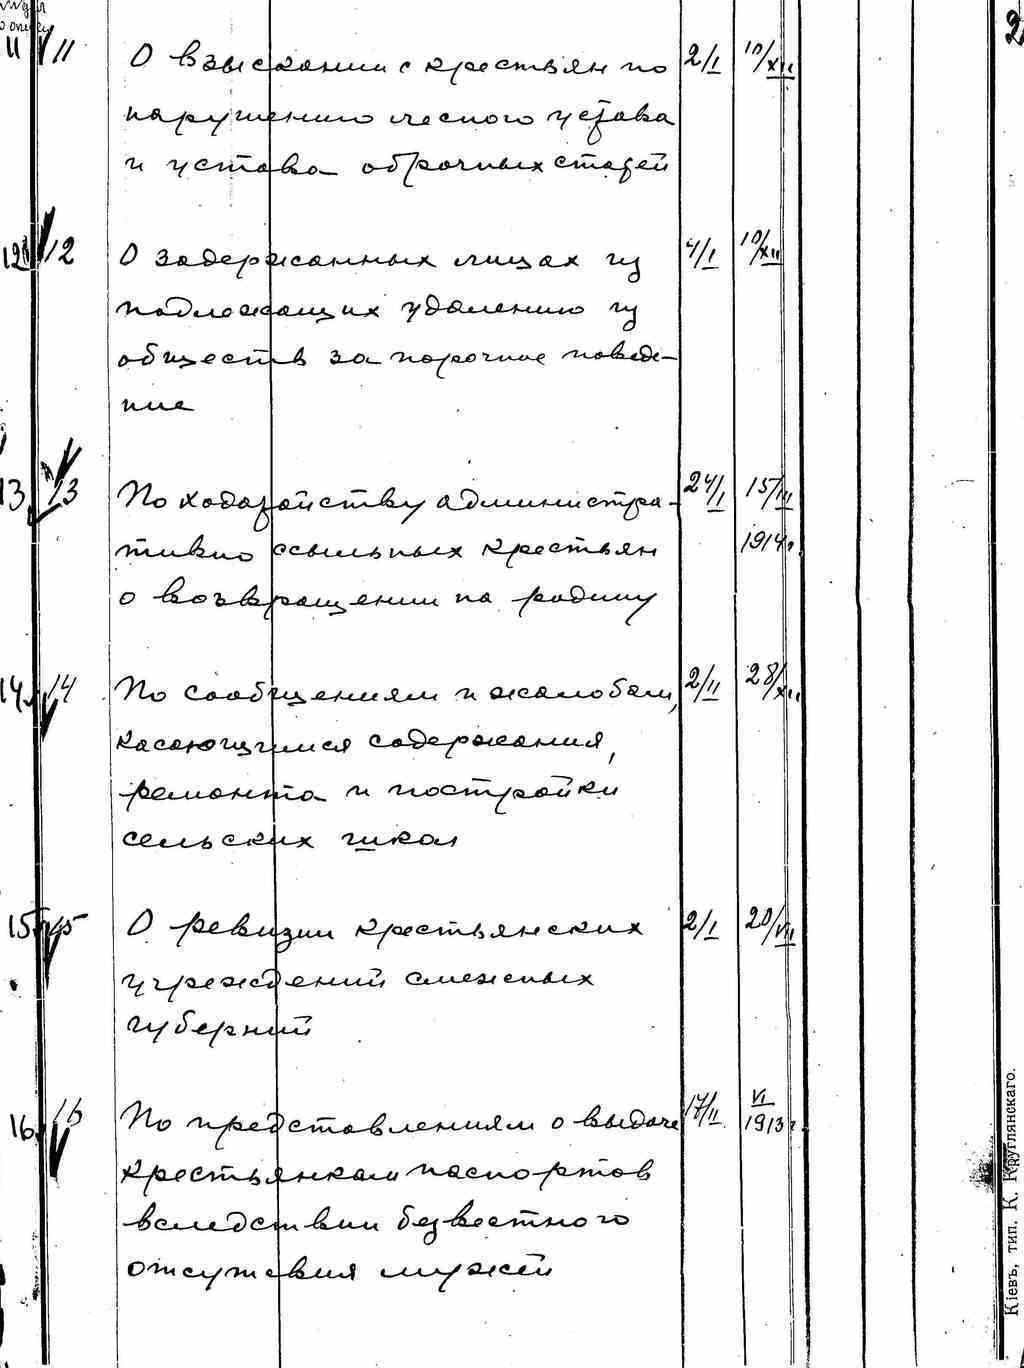 11 11 О взыскании с крестьян по 2/I 10/XII
нарушению лесного устава
и устава оброчных статей
12 12 О задержанных лицах из 4/I 10/XII
подлежащих удалению из
обществ за порочное поведе-
ние
13 13 По ходатайству администра- 24/I 15/III
тивно ссыльных крестьян 1914г.
о возвращении на родину
14 14 По сообщениям и жалобам, 2/II 28/XII
касающимся содержания,
ремонта и постройки
сельских школ
15 15 О ревизии крестьянских 2/I 20/VII
учреждений смежных
губерний
16 16 По представлениям о выдаче 17/II VI
1913г.
крестьянкам паспортов
вследствии безвестного
отсутствия мужей
Кіевъ, тип. К. Круглянскаго.